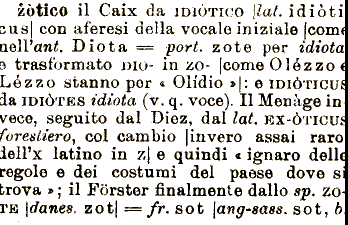 żòtico il Caix da IDIÒTICO [lat. idiòti
cus] con aferesi della vocale iniziale [come
nell'ant. Diota = port. zote per idiota
e trasformato DIO- in zo- [come Olézzo e
Lézzo stanno per « Olidio »]: e IDIÒTICUS
da IDIÒTES idiota (v. q. voce). Il Menàge in
vece, seguito dal Diez, dal lat. EX-ÒTICUS
forestiero, col cambio [invero assai raro
dell'x latino in z] e quindi « ignaro delle
regole e dei costumi del paese dove si
trova »; il Förster finalmente dallo sp. zo-
TE [danes. zot] = fr. sot [ang-sass. sot, b.